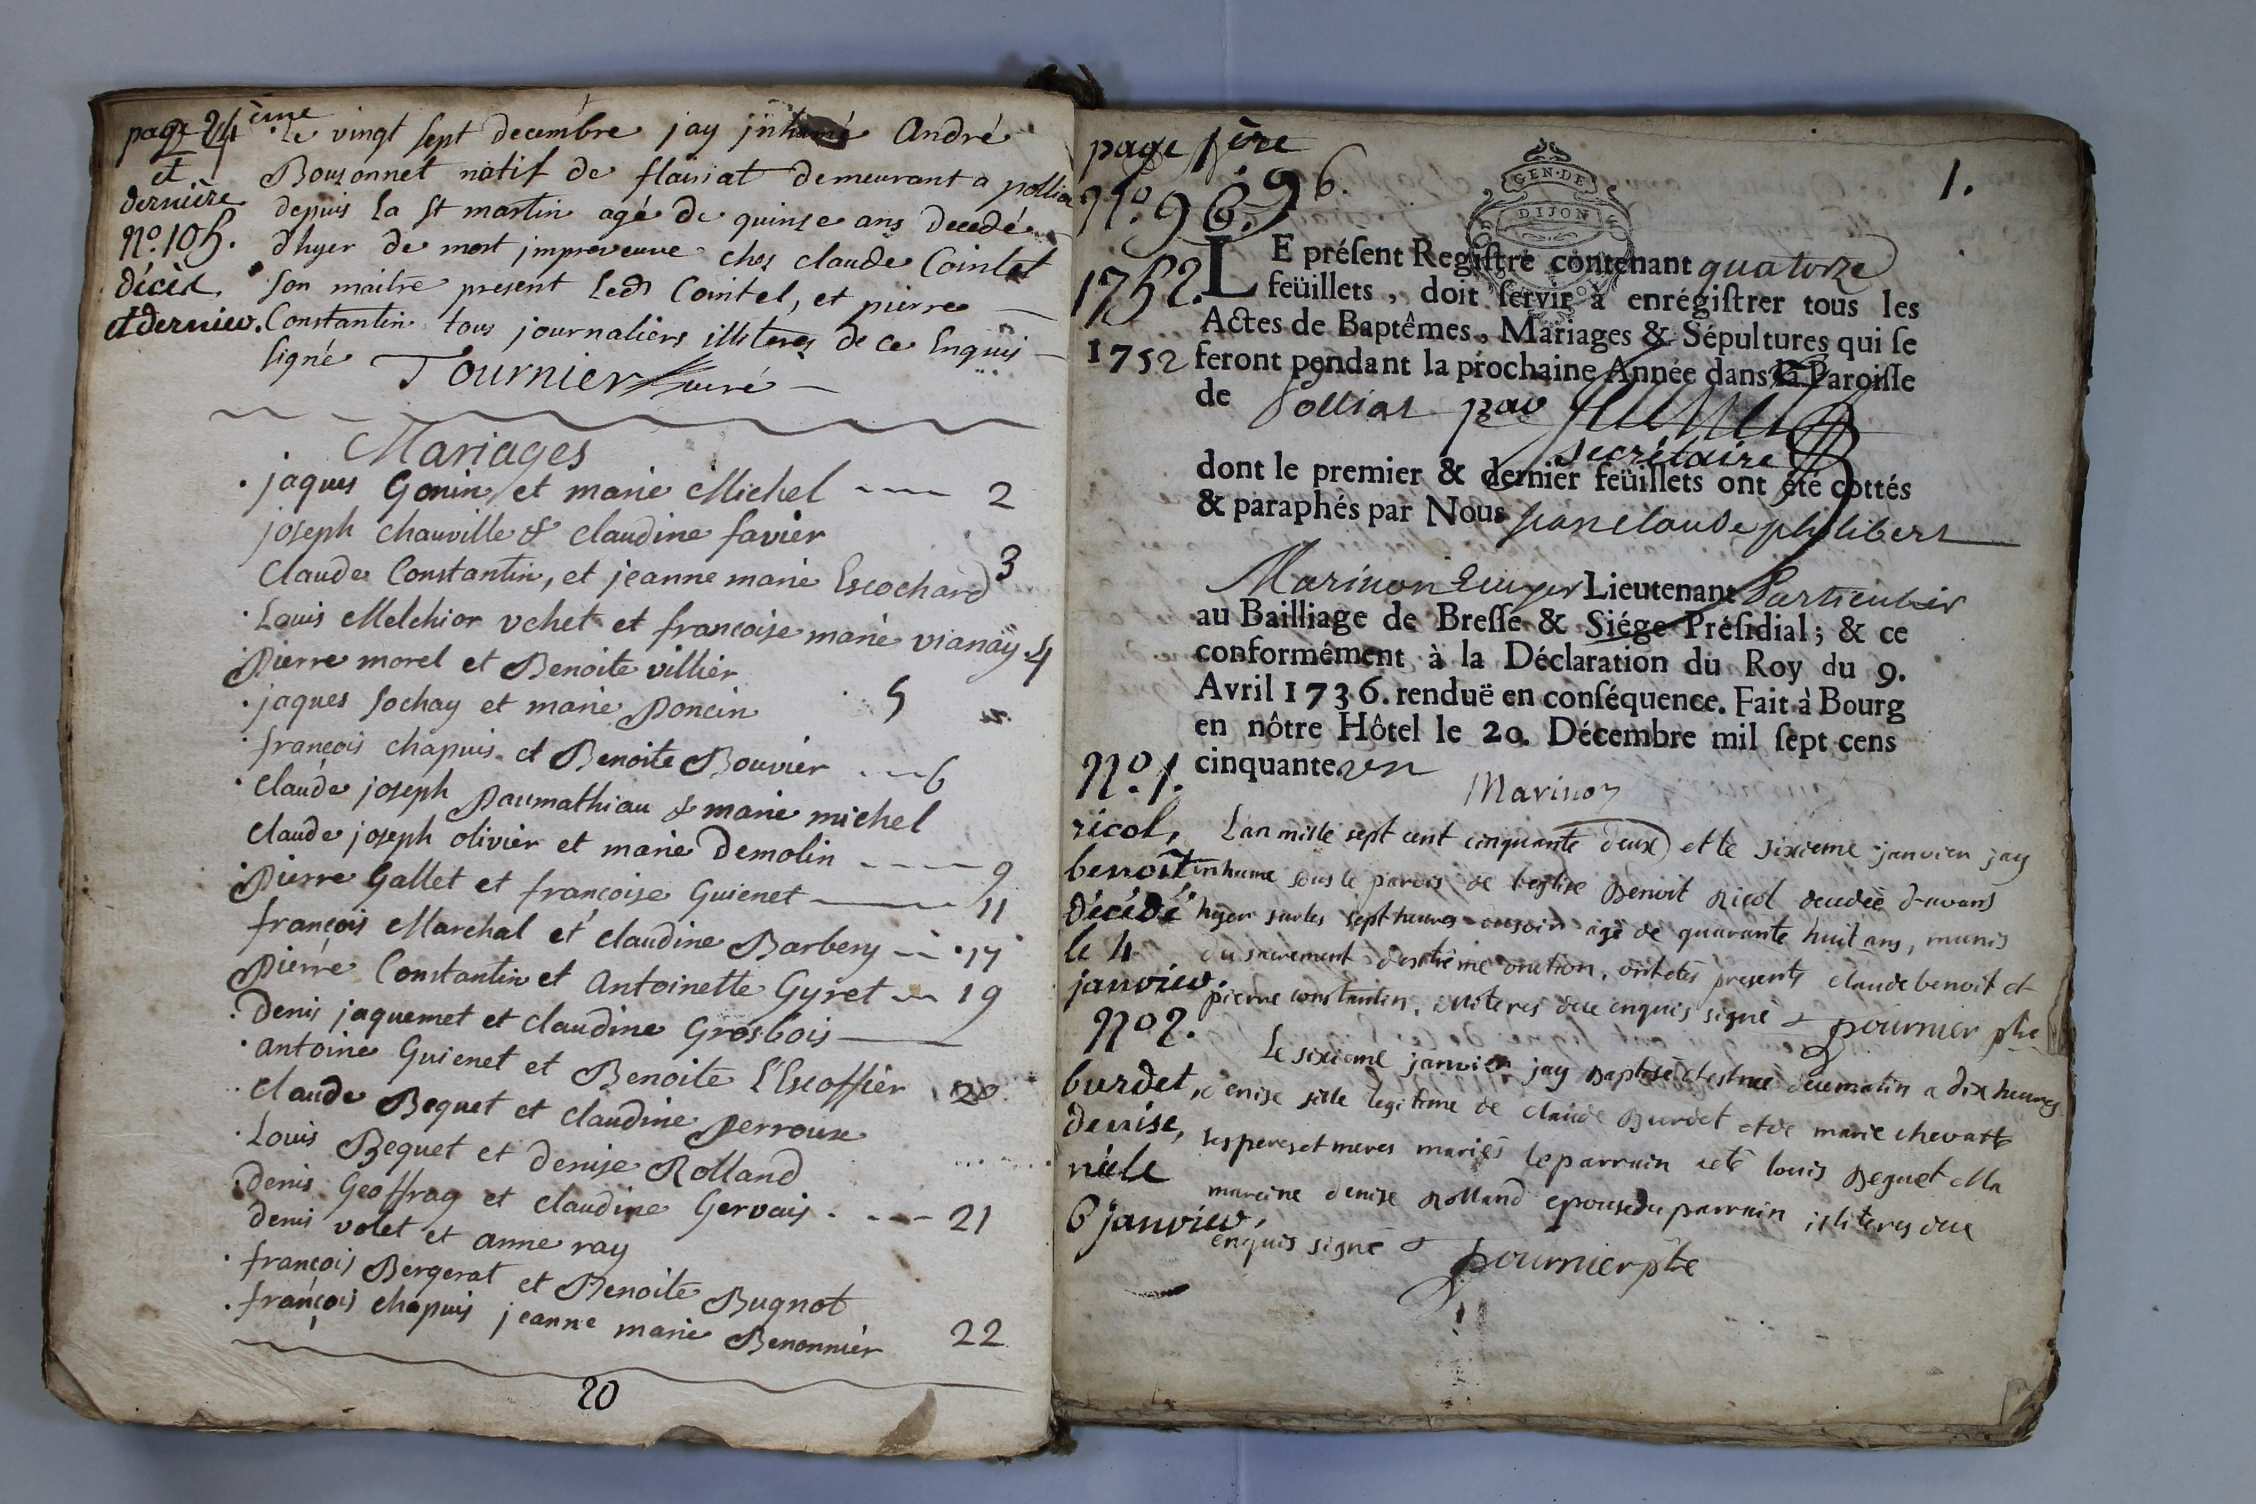 page 24ème
et
dernière
No. 105.
décès.
et dernier.
Le vingt sept decembre jay jnhumé André
Bouzonnet natif de flairiat demeurant a polliat
depuis la st martin agé de quinse ans decedé
d'hyer de mort impreveuue ches claude Cointet
son maitre present Led Cointel, et pierre
Constantin tous journaliers illiteres de ce Enquis
signé Tournier curé
Mariages
jaques Gonin et marie Michel ---- 2
joseph chauville & claudine favier
Claude Constantin, et jeanne marie Escochard 3
Louis Melchior vchet et francoise marie vianay 4
Pierre morel et Benoite villier
jaques sochay et marie Poncin 5
françois chapuis et Benoite Bouvier ---6
Claude joseph Paumathiau & marie michel
Claude joseph olivier et marie Demolin ---- 9
Pierre Gallet et francoise Guienet 11
françois Marchal et claudine Barbery -- 17
Pierre Constantin et Antoinette Gyret -- 19
Denis jaquemet et claudine Grosbois
antoine Guienet et Benoite l'Escoffier 20
claude Bequet et claudine Perroux
Louis Bequet et Denise Rolland
Denis Geoffray et claudine Gervais ---- 21
Denis volet et anne ray
françois Bergerat et Benoite Bugnot
françois chapuis jeanne marie Benonnier 22
20
page 1ère
No. 96. 96.
1.
GEN. DE
DIJON
1752.
1752
LE préſent Regiſtre contenant quatorze
feüillets, doit ſervir à enrégiſtrer tous les
Actes de Baptêmes, Mariages & Sépultures qui ſe
feront pendant la prochaine Année dans la Paroiſſe
de Polliat par
secrétaire
dont le premier & dernier feüillets ont été cottés
& paraphés par Nous jean claude philibert
Marinon Lieutenant Particulier
au Bailliage de Breſſe & Siége Préſidial; & ce
conformément à la Déclaration du Roy du 9.
Avril 1736. renduë en conſéquence. Fait à Bourg
en nôtre Hôtel le 20. Décembre mil ſept cens
cinquante un
Marinon
No. 1.
ricol,
benoît
décédé
le 4
janvier.
Lan mille sept cent cinquante deux et le sixieme janvier jay
inhumé sous le parvis de leglise Benoit Ricol decedée d'avans
hyer sur les sept heures du soir agé de quarante huit ans, munis
du sacrement d'extrême onction, ont etés presents claude benoit et
pierre constantin, illiteres de ce enquis signé & pournier ptre
No 2.
burdet,
denise,
née le
6 janvier,
Le sixieme janvier jay Baptisé et est née de ce matin a dix heures
denise fille legitime de claude Burdet et de marie chevatte
ses peres et meres mariés le parrain a eté louis Beguet et la
mareine denise Rolland epouse du parrain illiteres de ce
enquis signé & pournier ptre